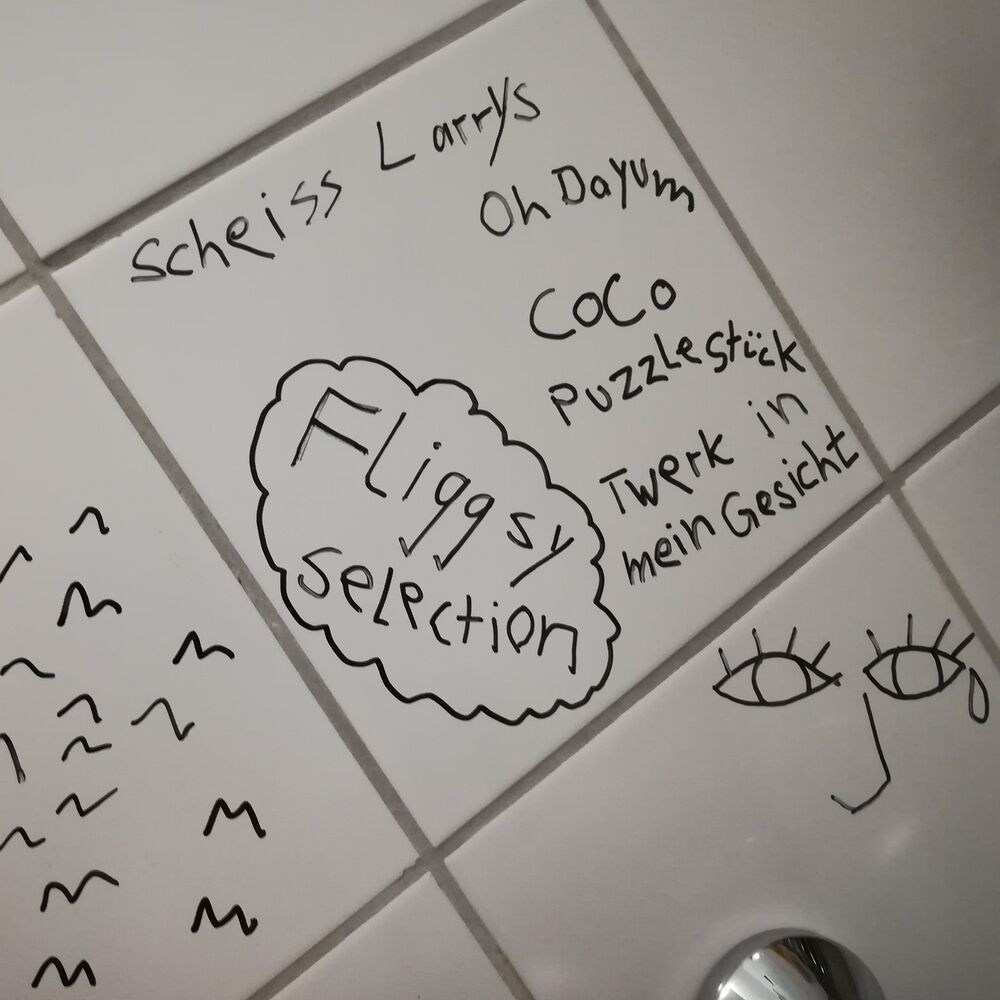 Scheiss Larrys
Oh Dayum
CoCo
Puzzlestück
Twerk in
mein Gesicht
Fliggsy
Selection